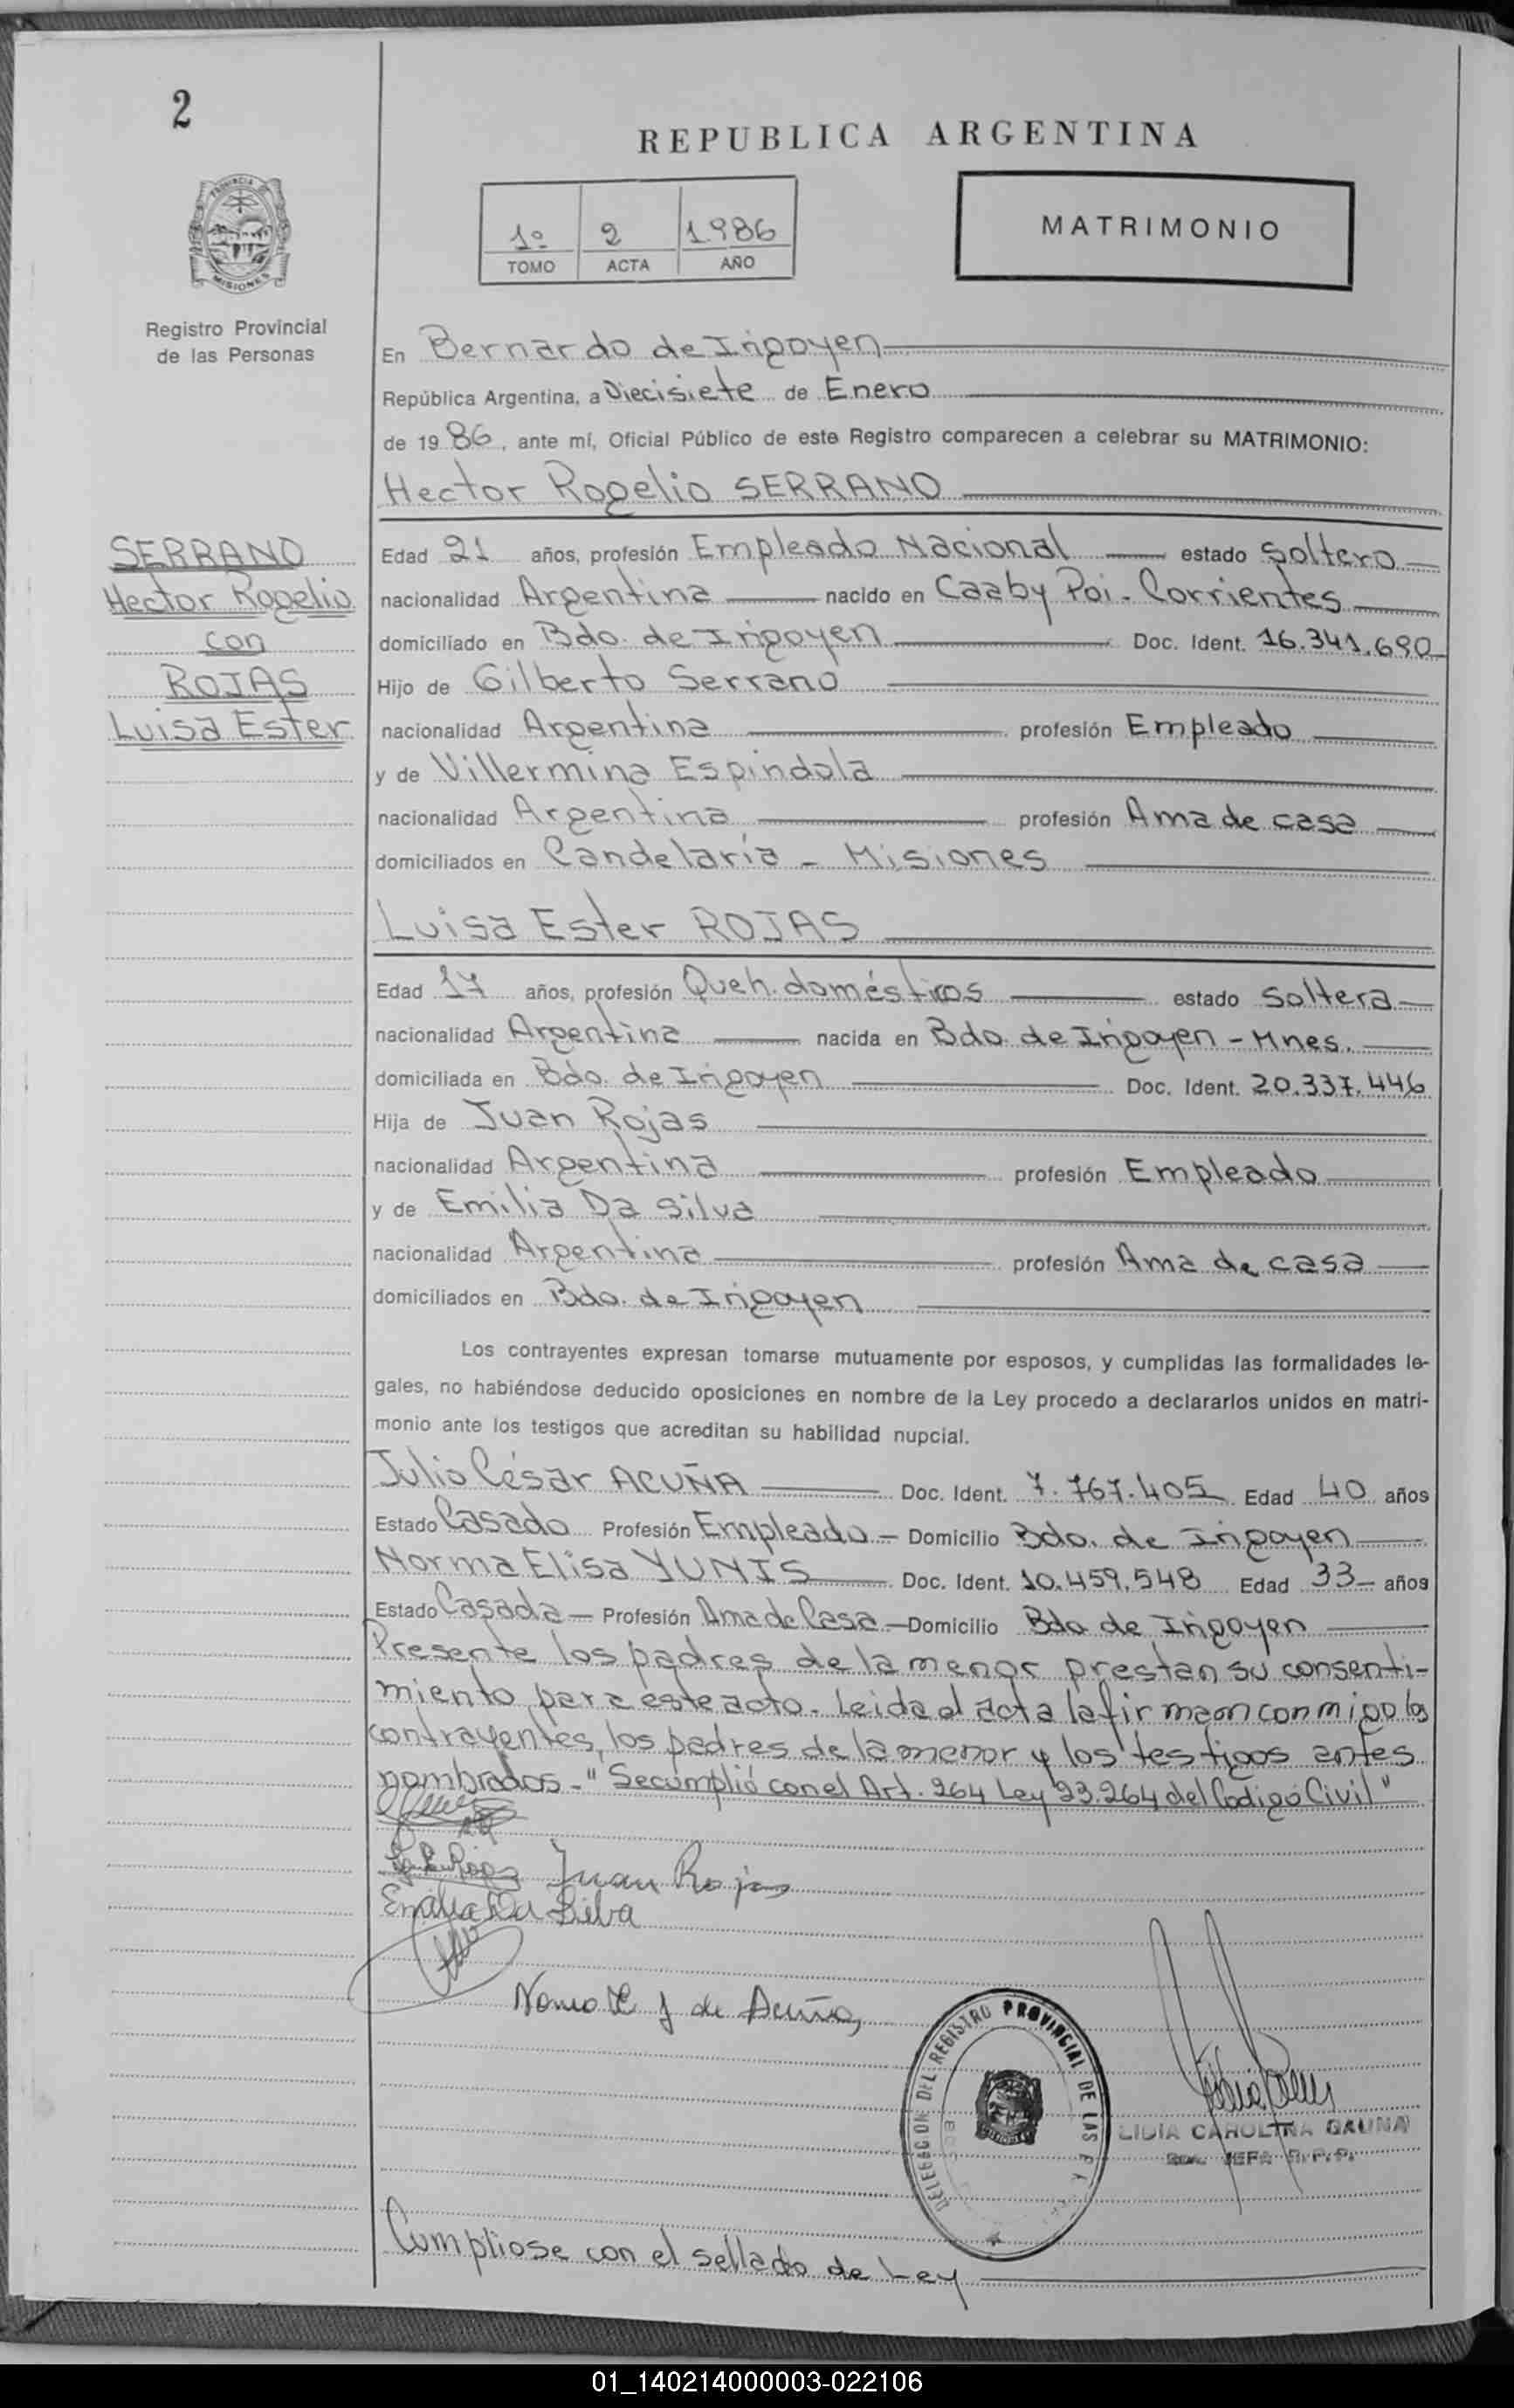 2
REPUBLICA ARGENTINA
PROVINCIA
MISIONES
1º 2 1986
TOMO ACTA AÑO
MATRIMONIO
Registro Provincial
de las Personas
En Bernardo de Irigoyen
República Argentina, a Diecisiete de Enero
de 1986, ante mí, Oficial Público de este Registro comparecen a celebrar su MATRIMONIO:
Hector Rogelio SERRANO
SERRANO
Hector Rogelio
con
ROJAS
Luisa Ester
Edad 21 años, profesión Empleado Nacional estado soltero
nacionalidad Argentina nacido en Caaby Poi - Corrientes
domiciliado en Bdo. de Irigoyen Doc. Ident. 16.341.690
Hijo de Gilberto Serrano
nacionalidad Argentina profesión Empleado
y de Villermina Espindola
nacionalidad Argentina profesión Ama de casa
domiciliados en Candelaria - Misiones
Luisa Ester ROJAS
Edad 17 años, profesión Queh. domésticos estado soltera
nacionalidad Argentina nacida en Bdo. de Irigoyen - Mnes.
domiciliada en Bdo. de Irigoyen Doc. Ident. 20.337.446
Hija de Juan Rojas
nacionalidad Argentina profesión Empleado
y de Emilia Da Silva
nacionalidad Argentina profesión Ama de casa
domiciliados en Bdo. de Irigoyen
Los contrayentes expresan tomarse mutuamente por esposos, y cumplidas las formalidades le-
gales, no habiéndose deducido oposiciones en nombre de la Ley procedo a declararlos unidos en matri-
monio ante los testigos que acreditan su habilidad nupcial.
Julio César ACUÑA Doc. Ident. 7.767.405 Edad 40 años
Estado Casado Profesión Empleado - Domicilio Bdo. de Irigoyen
Norma Elisa YUNIS Doc. Ident. 10.459.548 Edad 33 años
Estado Casada - Profesión Ama de Casa - Domicilio Bdo de Irigoyen
Presente los padres de la menor prestan su consenti-
miento para este acto. Leida el acta la firman conmigo los
contrayentes, los padres de la menor y los testigos antes
nombrados - "Se cumplió con el Art. 264 Ley 23.264 del Codigo Civil"
Juan Rojas
Emilia Da Silva
de Acuña
DELEGACION DEL REGISTRO PROVINCIAL DE LAS
LIDIA CAROLINA GAUNA
JEFA R.P.P.
Cumpliose con el sellado de Ley
01_140214000003-022106